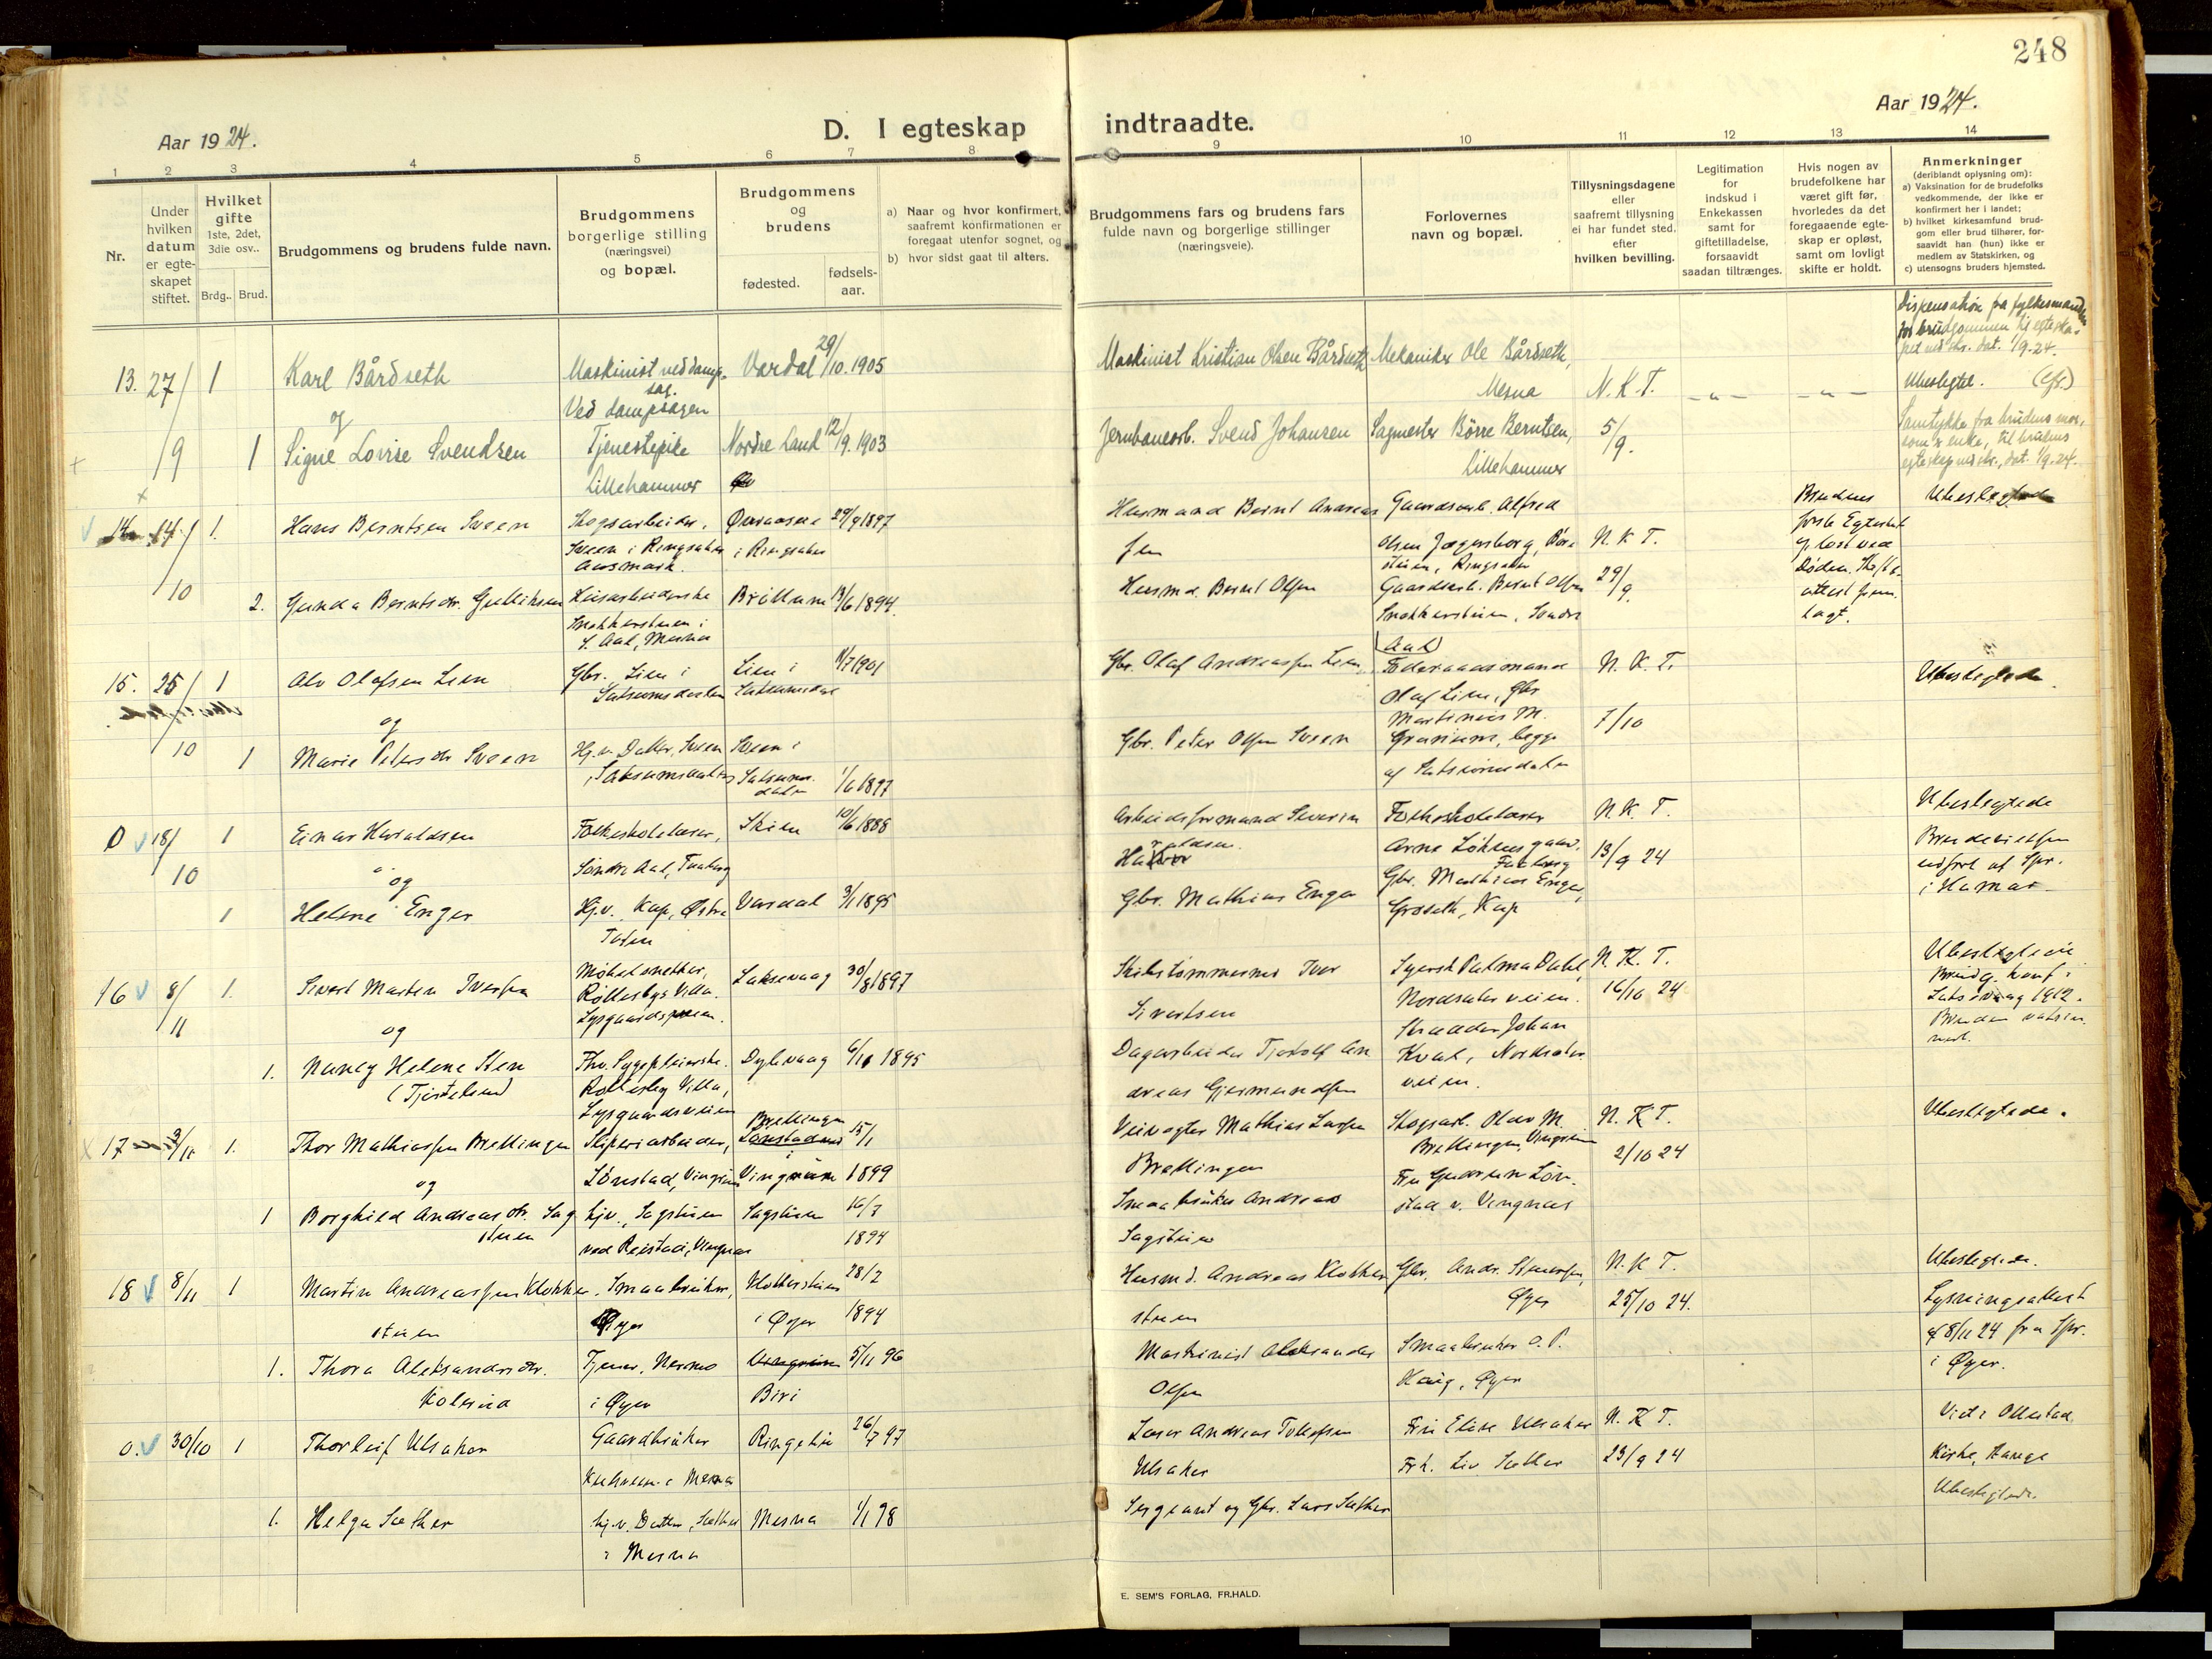 248
Aar 1924.
D. I egteskap
indtraadte.
Aar 1924.
1 2 3 4 5 6 7 8 9 10 11 12 13 14
Nr.
Under hvilken datum er egteskapet stiftet.
Hvilket gifte 1ste, 2det, 3die osv..
Brdg.. Brud.
Brudgommens og brudens fulde navn.
Brudgommens borgerlige stilling (næringsvei) og bopæl.
Brudgommens og brudens
fødested.
fødsels-aar.
a) Naar og hvor konfirmert, saafremt konfirmationen er foregaat utenfor sognet, og
b) hvor sidst gaat til alters.
Brudgommens fars og brudens fars fulde navn og borgerlige stillinger (næringsveie).
Forlovernes navn og bopæl.
Tillysningsdagene eller saafremt tillysning ei har fundet sted, efter hvilken bevilling.
Legitimation for indskud i Enkekassen samt for giftetilladelse, forsaavidt saadan tiltrænges.
Hvis nogen av brudefolkene har været gift før, hvorledes da det foregaaende egteskap er opløst, samt om lovligt skifte er holdt.
Anmerkninger
(deriblandt oplysning om):
a) Vaksination for de brudefolks vedkommende, der ikke er konfirmert her i landet;
b) hvilket kirkesamfund brudgom eller brud tilhører, forsaavidt han (hun) ikke er medlem av Statskirken, og
c) utensogns bruders hjemsted.
13. 27/9 1 Karl Bårdseth Maskinist ved dampsag. Ved dampsagen Vardal 29/10. 1905
Maskinist Kristian Olsen Bårdseth Mekaniker Ole Bårdseth, Mesna N. K. T. - " - - " -
Dispensation fra fylkesmanden for brudgommen til egteskapet ved skr. dat. 1/9-24.
Ubeslegtet.
og
1 Signe Lovise Svendsen Tjenestepike Lillehammer Nordre Land 12/9. 1903
Jernbanearb. Svend Johansen Sagmester Børre Berntsen, Lillehammer 5/9.
Samtykke fra brudens mor, som er enke, til brudens egteskap ved skr., dat. 1/9.24.
14 14/10 1. Hans Berntsen Sveen Skogsarbeider, Sveen i Ringsaker i Ringsaker 29/9 1897
Husmand Bernt Andreas sen Gaardsarb. Alfred Olsen Jægersborg, Ringsaker N. K T.
Brudens første Egteskab opløst ved Døden. Skifteattest frem lagt.
Ubeslegtede
2. Gunda Berntsdtr. Gulliksen Husarbeiderske Snekkerstuen i S. Aal, Mesna Brøttum 13/6 1894.
Husmd. Bernt Olsen Gaardsarb. Bernt Olsen Snekkerstuen, Søndre Aal 29/9
15. 25/10 1 Alv Olafsen Lien Gbr. Lien i Saksumsdalen Lien i Saksumsdal 9/7 1901
Gbr. Olaf Andreassen Lien, Føderaadsmand Olaf Lien, Gbr Martinius M. begge af Saksumsdalen N. K. T. 7/10
Ubeslegtede.
og
1 Marie Petersdtr Sveen Hj.v. Datter, Sveen i Saksumsdalen Sveen i Saksumsdalen 1/6 1897
Gbr. Peter Olsen Sveen
0 18/10 1 Einar Haraldsen Folkeskolelærer, Søndre Aal, Faaberg Skien 10/6 1888
Arbeidsformand Severin Haraldsen Folkeskolelærer Arne Løkensgaard, Faaberg N. K. T. 13/9 24
Ubeslegtede
Brudevielsen udført af Spr. i Hamar
og
1 Helene Enger Hj.v. Kap, Østre Toten Vardal 3/1 1895
Gbr. Mathias Enger Gbr. Mathias Enger, Kap
16 8/11 1. Sivert Martin Iversen Møbelsnekker, Rollesbys Villa. Lysgaardsveien. Laksevaag 30/8 1897
Skibstømmermd Iver Sivertsen Sygersk. Palma Dahl, Nordseterveien. N. K. T. 16/10 24
Ubeslegtede
Brudg. konf. i Laksevaag 1912.
Bruden vaksinert.
og
1. Nancy Helene Sten (Tjostelsen) Fhv. Sygepleierske. Rollesby Villa, Lysgaardsveien Dybvaag 6/10 1895
Dagarbeider Tjodolf Andreas Gjermundsen Skrædder Johan Kval, Nordseterveien.
17 3/11 1. Thor Mathiassen Brettingen Sliperiarbeider, Lønstad, Vingrom Brettingen i Vingrom 15/1 1899
Veivogter Mathias Larsen Brettingen Skogsarb. Olav M. Brettingen, Vingrom N. K T. 2/10 24
Ubeslegtede.
og
1 Borghild Andreasdtr. Sagstuen hjv., Sagstuen ved Reistad, Vingnes Sagstuen 16/7 1894
Smaabruker Andreas Sagstuen Fru Gudrun Lønstad v. Vingnes
18 8/11 1 Martin Andreassen Klokkerstuen Smaabruker, Øyer Klokkerstuen i Øyer 28/2 1894
Husmd. Andreas Klokkerstuen Gbr. Andr. Stenersen, Øyer N. K T. 25/10 24.
Ubeslegtede.
Lysningsattest af 8/11 24 fra Spr. i Øyer.
1. Thora Aleksandersdtr. Kolerud Tjener, Nermo i Øyer Biri 5/11 96
Maskinist Aleksander Olsen Smaabruker O. P. Haug, Øyer
0. 30/10 1 Thorleif Ulsaker Gaardbruker i Mesna Ringebu 26/7 97
Lærer Andreas Tollefsen Ulsaker Fru Elise Ulsaker Frk. Liv Sæther N. K T. 23/9 24
Viet i Ullestad Kirke, Hauge
Ubeslegtede.
1. Helga Sæther hj.v. Datter, Sæther i Mesna Mesna 1/1 98
Sergeant og Gbr. Lars Sæther
E. SEM'S FORLAG, FR.HALD.